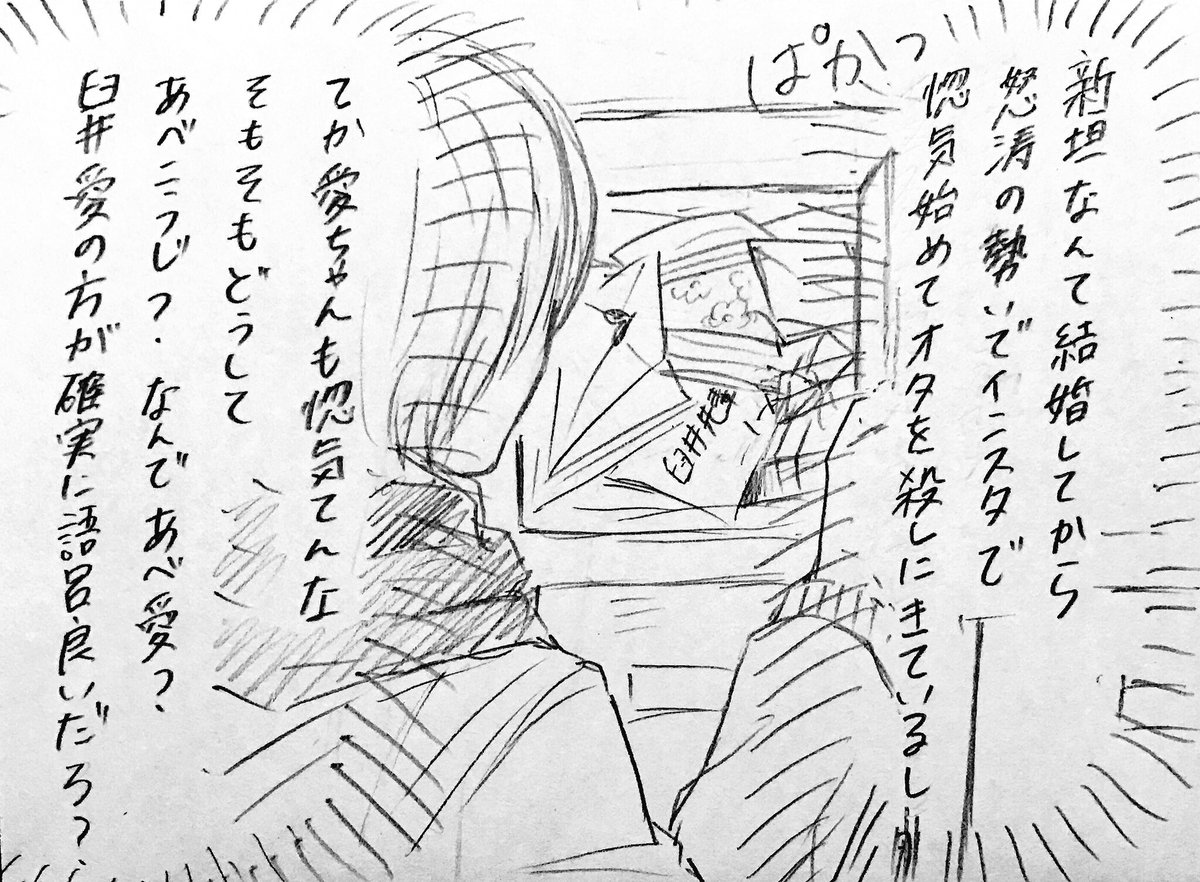 新垣なんて結婚してから
怒涛の勢いでインスタで
惚気始めてオタを殺しにきているし
ぱかっ
臼井先輩
てか愛ちゃんも惚気てんな
そもそもどうして
あべこうじ？なんであべ愛？
臼井愛の方が確実に語呂良いだろ？